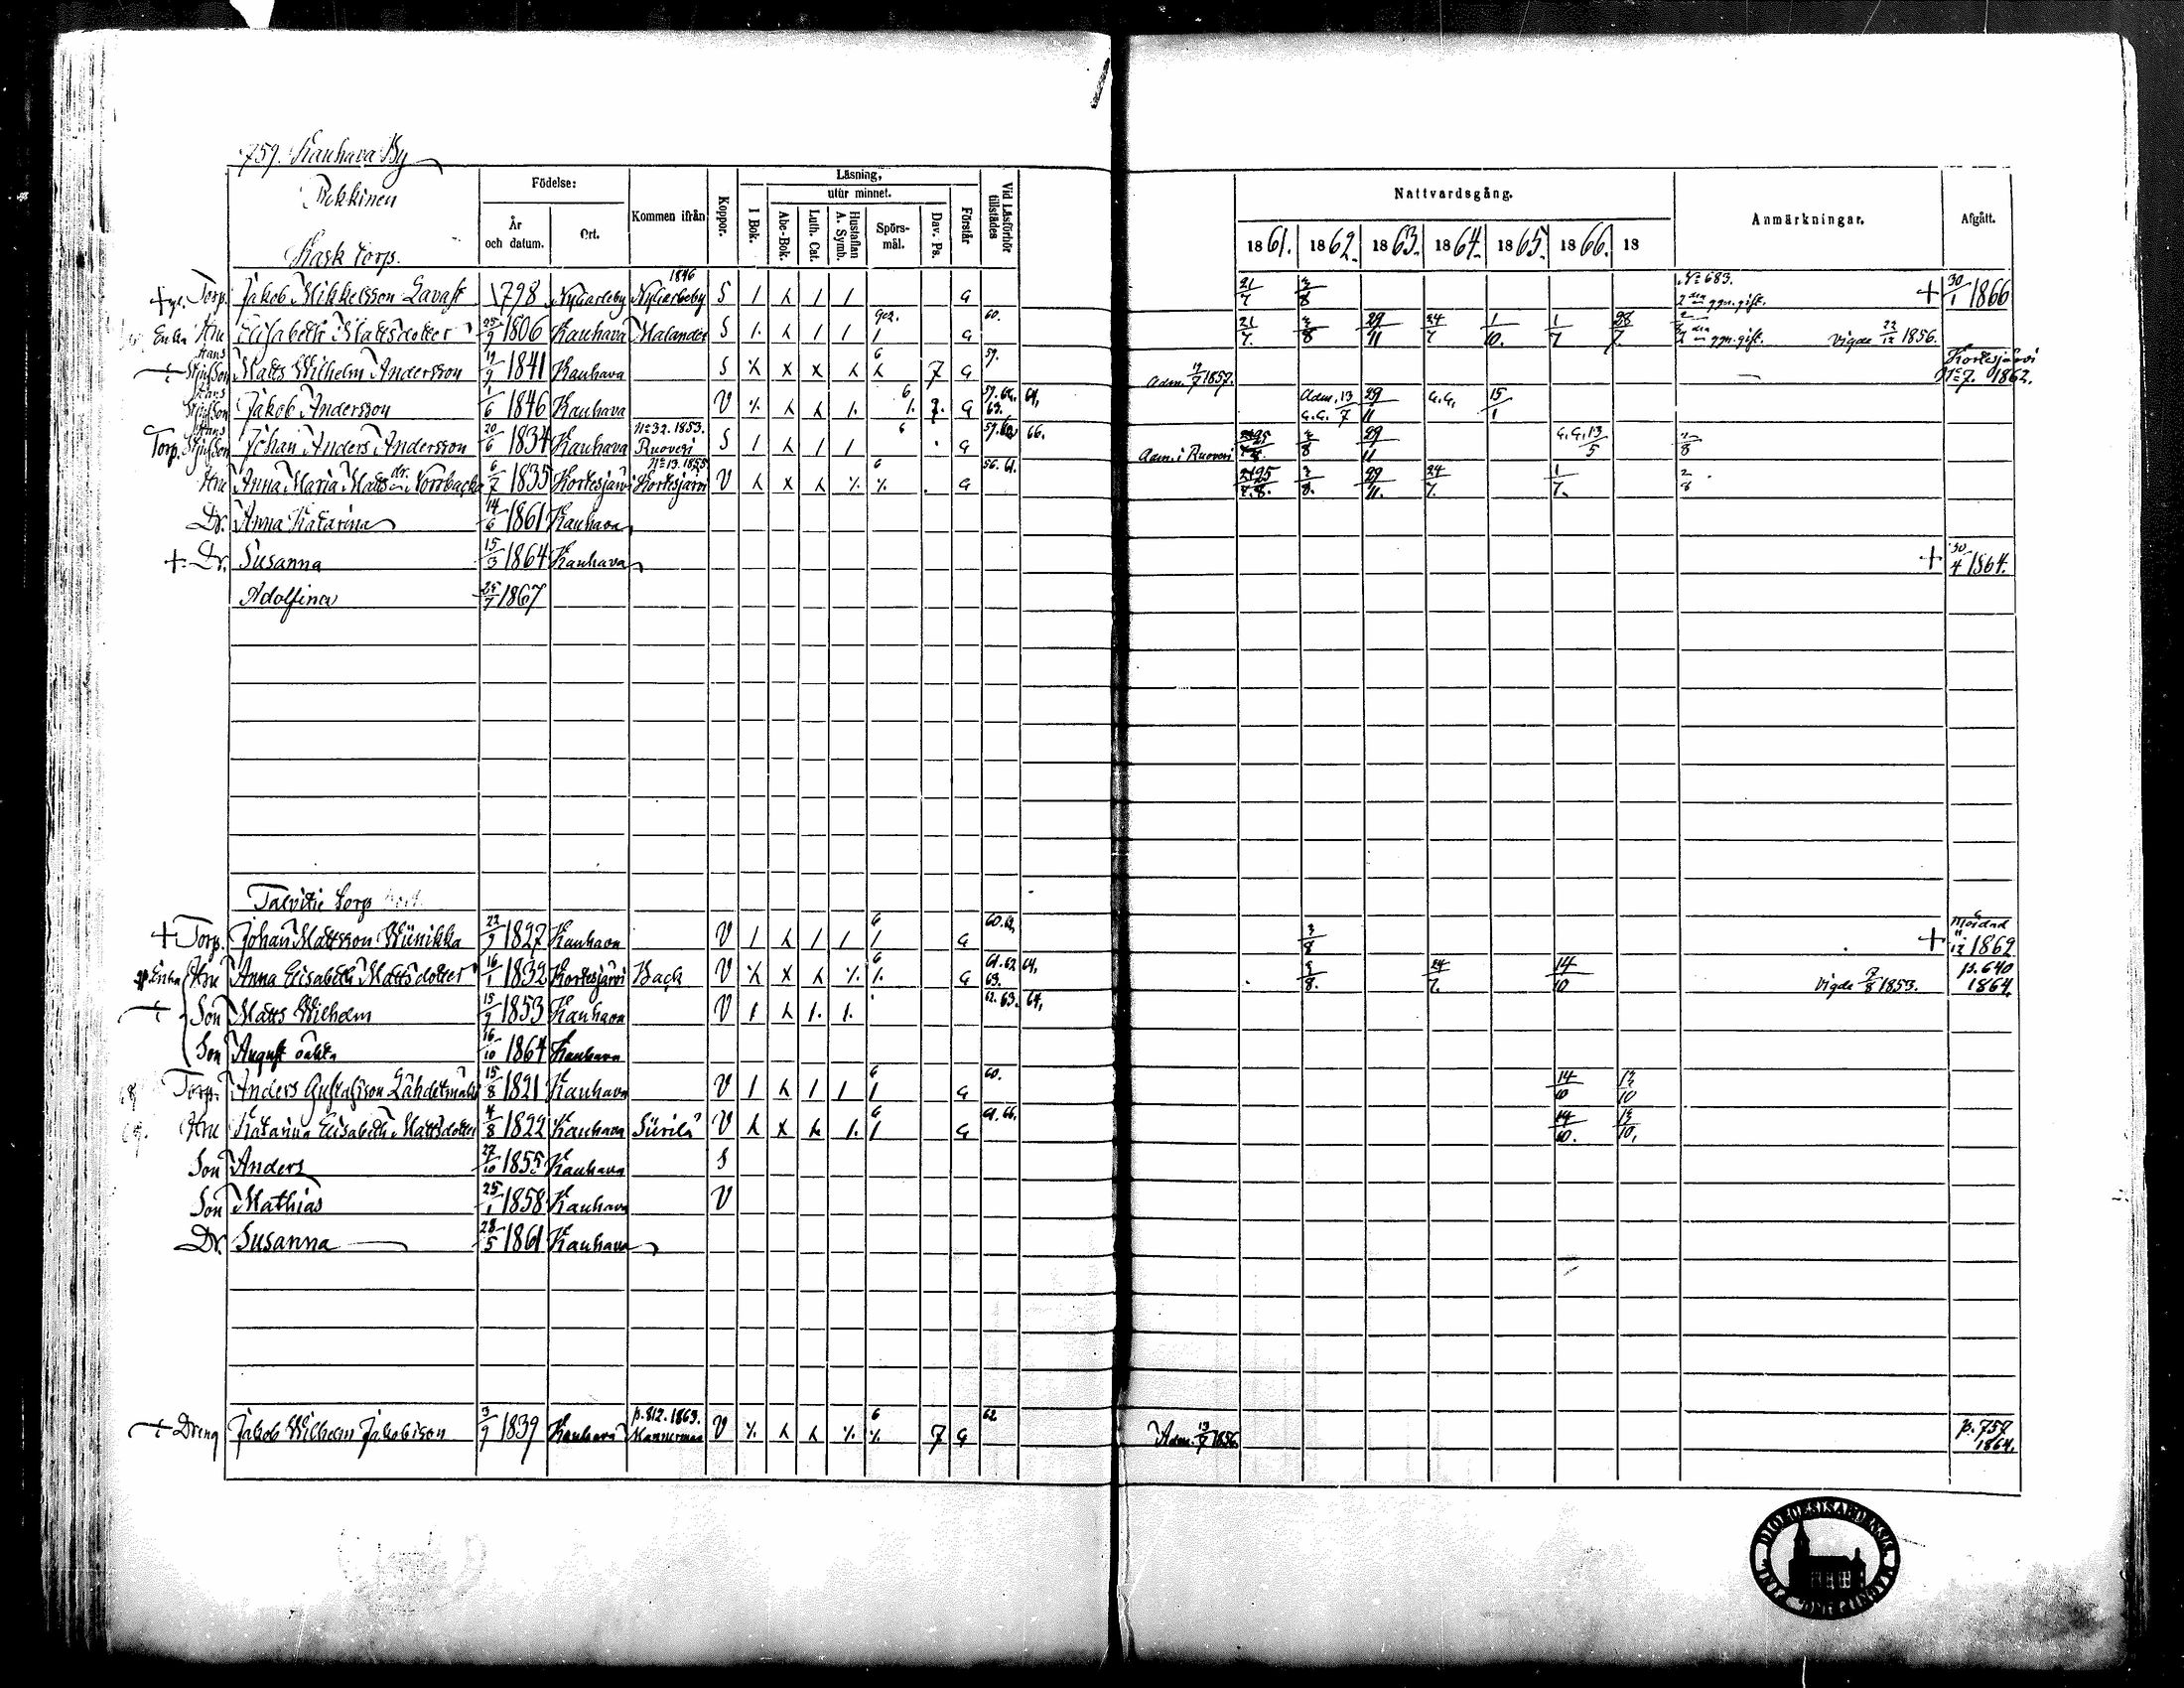 759. Kauhava By
Kask torp.
Födelse: Läsning, Nattvardsgång.
År och datum. Ort. Kommen ifrån Koppor. I Bok. utur minnet. Abc-Bok. Luth. Cat. Hustaflan A. Symb. Spörs-mål. Dav. Ps. Förstår Vid Läsförhör tillstädes Anmärkningar. Afgått.
1861. 1862. 1863. 1864. 1865. 1866. 18
Torp. Jakob Mikkelsson Lavast 1798 NyCarleby NyCarleby 1846 S G 21/7 3/8 No 683. 2den ggn. gift. + 30/1 1866
Enka Hu Elisabeth Mattsdotter 25/9 1806 Kauhava Malander S G 60. 21/7. 3/8 29/11 24/7 1/10. 1/7 28/7. 2den ggn. gift. Vigde 22/12 1856.
Hans Stjufson Matts Wilhelm Andersson 1841 Kauhava S 6 7 G 57. Adm. 1857. Kortesjärvi No 7. 1862.
Hans Stjufson Jakob Andersson 1/6 1846 Kauhava V 6 7. G 63. 64, Adm. 13/7 29/11 15/1
Torp. Hans Stjufson Johan Anders Andersson 20/6 1834 Kauhava No 32. 1853. Ruovesi S 6 G 66. Adm. i Ruovesi 3/8 29/11 13/5
Hu Anna Maria Matts dr. Norrbacka 6/7 1835 Kortesjärvi No 13. 1855 Kortesjärvi V 6 G 56. 61. 3/8. 29/11. 24/7. 1/7.
Dr. Anna Katarina 14/6 1861 Kauhava
+ Dr. Susanna 15/3 1864 Kauhava + 30/4 1864.
Adolfina 1867
Talvitie torp
+ Torp. Johan Mattsson 22/9 1827 Kauhava V 6 G 3/8 + Mördad 1862
Enka Hu Anna Elisabeth Mattsdotter 16/1 1832 Kortesjärvi Back V 6 G 61. 62 63. 64, 24/7. 14/10 Vigde 7/8 1853. p. 640 1864.
Son Matts Wilhelm 15/9 1853 Kauhava V 62. 63. 64,
Son August oäkta 16/10 1864 Kauhava
Torp. Anders Gustafsson 15/8 1821 Kauhava V 6 G 60. 14/10 13/10
Hu Katarina Elisabeth Mattsdotter 4/8 1822 Kauhava Siirilä V 6 G 61. 66. 14/10. 13/10.
Son Anders 27/10 1855 Kauhava S
Son Mathias 25/1 1858 Kauhava V
Dr. Susanna 28/5 1861 Kauhava
Dreng Jakob Wilhelm Jakobsson 3/9 1839 Kauhava p. 812. 1863. Mannermaa V 6 7 G 62 Adm. 13/7 1856. p. 757 1864.
DIOECESIS ABOENSIS